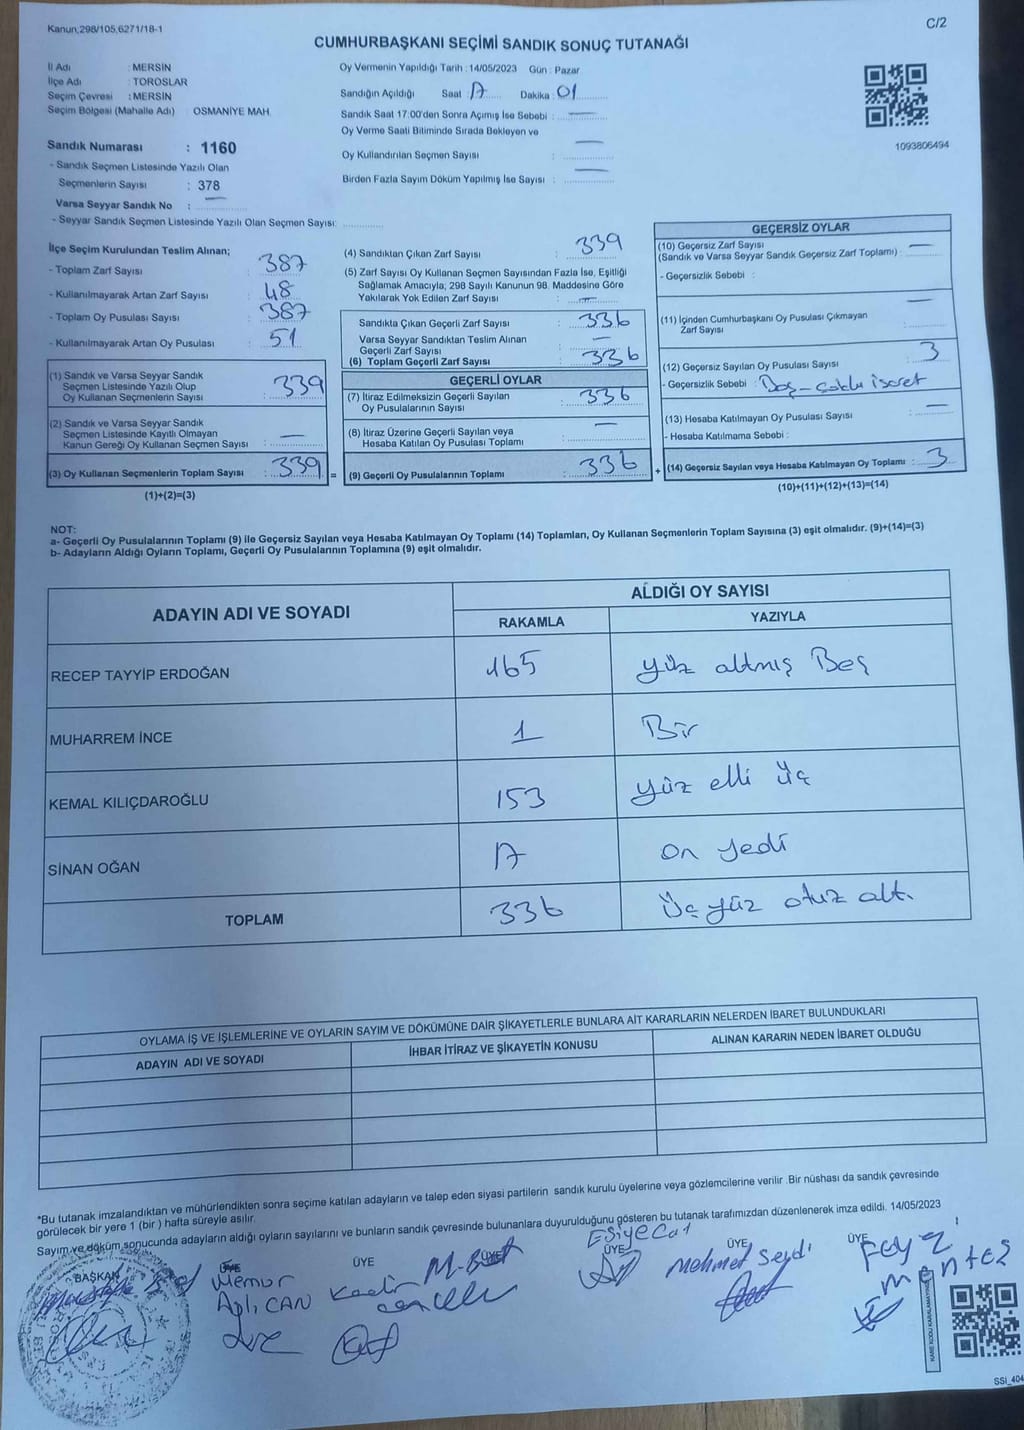 Kanun;298/105,6271/18-1
C/2
CUMHURBAŞKANI SEÇİMİ SANDIK SONUÇ TUTANAĞI
İl Adı : MERSİN
İlçe Adı : TOROSLAR
Seçim Çevresi : MERSİN
Seçim Bölgesi (Mahalle Adı) : OSMANİYE MAH
Sandık Numarası : 1160
- Sandık Seçmen Listesinde Yazılı Olan
Seçmenlerin Sayısı : 378
Varsa Seyyar Sandık No : —
- Seyyar Sandık Seçmen Listesinde Yazılı Olan Seçmen Sayısı:
Oy Vermenin Yapıldığı Tarih : 14/05/2023 Gün : Pazar
Sandığın Açıldığı Saat : 17 Dakika : 01
Sandık Saat 17:00'den Sonra Açımış İse Sebebi : —
Oy Verme Saati Bitiminde Sırada Bekleyen ve
Oy Kullandırılan Seçmen Sayısı : —
Birden Fazla Sayım Döküm Yapılmış İse Sayısı : —
1093806494
İlçe Seçim Kurulundan Teslim Alınan;
- Toplam Zarf Sayısı : 387
- Kullanılmayarak Artan Zarf Sayısı : 48
- Toplam Oy Pusulası Sayısı : 387
- Kullanılmayarak Artan Oy Pusulası : 51
(1) Sandık ve Varsa Seyyar Sandık
Seçmen Listesinde Yazılı Olup
Oy Kullanan Seçmenlerin Sayısı : 339
(2) Sandık ve Varsa Seyyar Sandık
Seçmen Listesinde Kayıtlı Olmayan
Kanun Gereği Oy Kullanan Seçmen Sayısı : —
(3) Oy Kullanan Seçmenlerin Toplam Sayısı : 339 =
(1)+(2)=(3)
(4) Sandıktan Çıkan Zarf Sayısı : 339
(5) Zarf Sayısı Oy Kullanan Seçmen Sayısından Fazla İse, Eşitliği
Sağlamak Amacıyla; 298 Sayılı Kanunun 98. Maddesine Göre
Yakılarak Yok Edilen Zarf Sayısı : —
Sandıkta Çıkan Geçerli Zarf Sayısı : 336
Varsa Seyyar Sandıktan Teslim Alınan
Geçerli Zarf Sayısı : —
(6) Toplam Geçerli Zarf Sayısı : 336
GEÇERLİ OYLAR
(7) İtiraz Edilmeksizin Geçerli Sayılan
Oy Pusulalarının Sayısı : 336
(8) İtiraz Üzerine Geçerli Sayılan veya
Hesaba Katılan Oy Pusulası Toplamı : —
(9) Geçerli Oy Pusulalarının Toplamı : 336 +
GEÇERSİZ OYLAR
(10) Geçersiz Zarf Sayısı
(Sandık ve Varsa Seyyar Sandık Geçersiz Zarf Toplamı) : —
- Geçersizlik Sebebi :
(11) İçinden Cumhurbaşkanı Oy Pusulası Çıkmayan
Zarf Sayısı : —
(12) Geçersiz Sayılan Oy Pusulası Sayısı : 3
- Geçersizlik Sebebi : Boş - çoklu işaret
(13) Hesaba Katılmayan Oy Pusulası Sayısı : —
- Hesaba Katılmama Sebebi :
(14) Geçersiz Sayılan veya Hesaba Katılmayan Oy Toplamı : 3
(10)+(11)+(12)+(13)=(14)
NOT:
a- Geçerli Oy Pusulalarının Toplamı (9) ile Geçersiz Sayılan veya Hesaba Katılmayan Oy Toplamı (14) Toplamları, Oy Kullanan Seçmenlerin Toplam Sayısına (3) eşit olmalıdır. (9)+(14)=(3)
b- Adayların Aldığı Oyların Toplamı, Geçerli Oy Pusulalarının Toplamına (9) eşit olmalıdır.
ADAYIN ADI VE SOYADI
ALDIĞI OY SAYISI
RAKAMLA YAZIYLA
RECEP TAYYİP ERDOĞAN 165 yüz altmış Beş
MUHARREM İNCE 1 Bir
KEMAL KILIÇDAROĞLU 153 yüz elli üç
SİNAN OĞAN 17 on yedi
TOPLAM 336 üç yüz otuz altı
OYLAMA İŞ VE İŞLEMLERİNE VE OYLARIN SAYIM VE DÖKÜMÜNE DAİR ŞİKAYETLERLE BUNLARA AİT KARARLARIN NELERDEN İBARET BULUNDUKLARI
ADAYIN ADI VE SOYADI İHBAR İTİRAZ VE ŞİKAYETİN KONUSU ALINAN KARARIN NEDEN İBARET OLDUĞU
*Bu tutanak imzalandıktan ve mühürlendikten sonra seçime katılan adayların ve talep eden siyasi partilerin sandık kurulu üyelerine veya gözlemcilerine verilir .Bir nüshası da sandık çevresinde
görülecek bir yere 1 (bir ) hafta süreyle asılır.
Sayım ve döküm sonucunda adayların aldığı oyların sayılarını ve bunların sandık çevresinde bulunanlara duyurulduğunu gösteren bu tutanak tarafımızdan düzenlenerek imza edildi. 14/05/2023
BAŞKAN ÜYE ÜYE ÜYE ÜYE ÜYE ÜYE
Memur
Aslı CAN
Kadir
Mehmet Seydi
Feyzi
KARE KODU KARALAMAYINIZ
SSİ_404